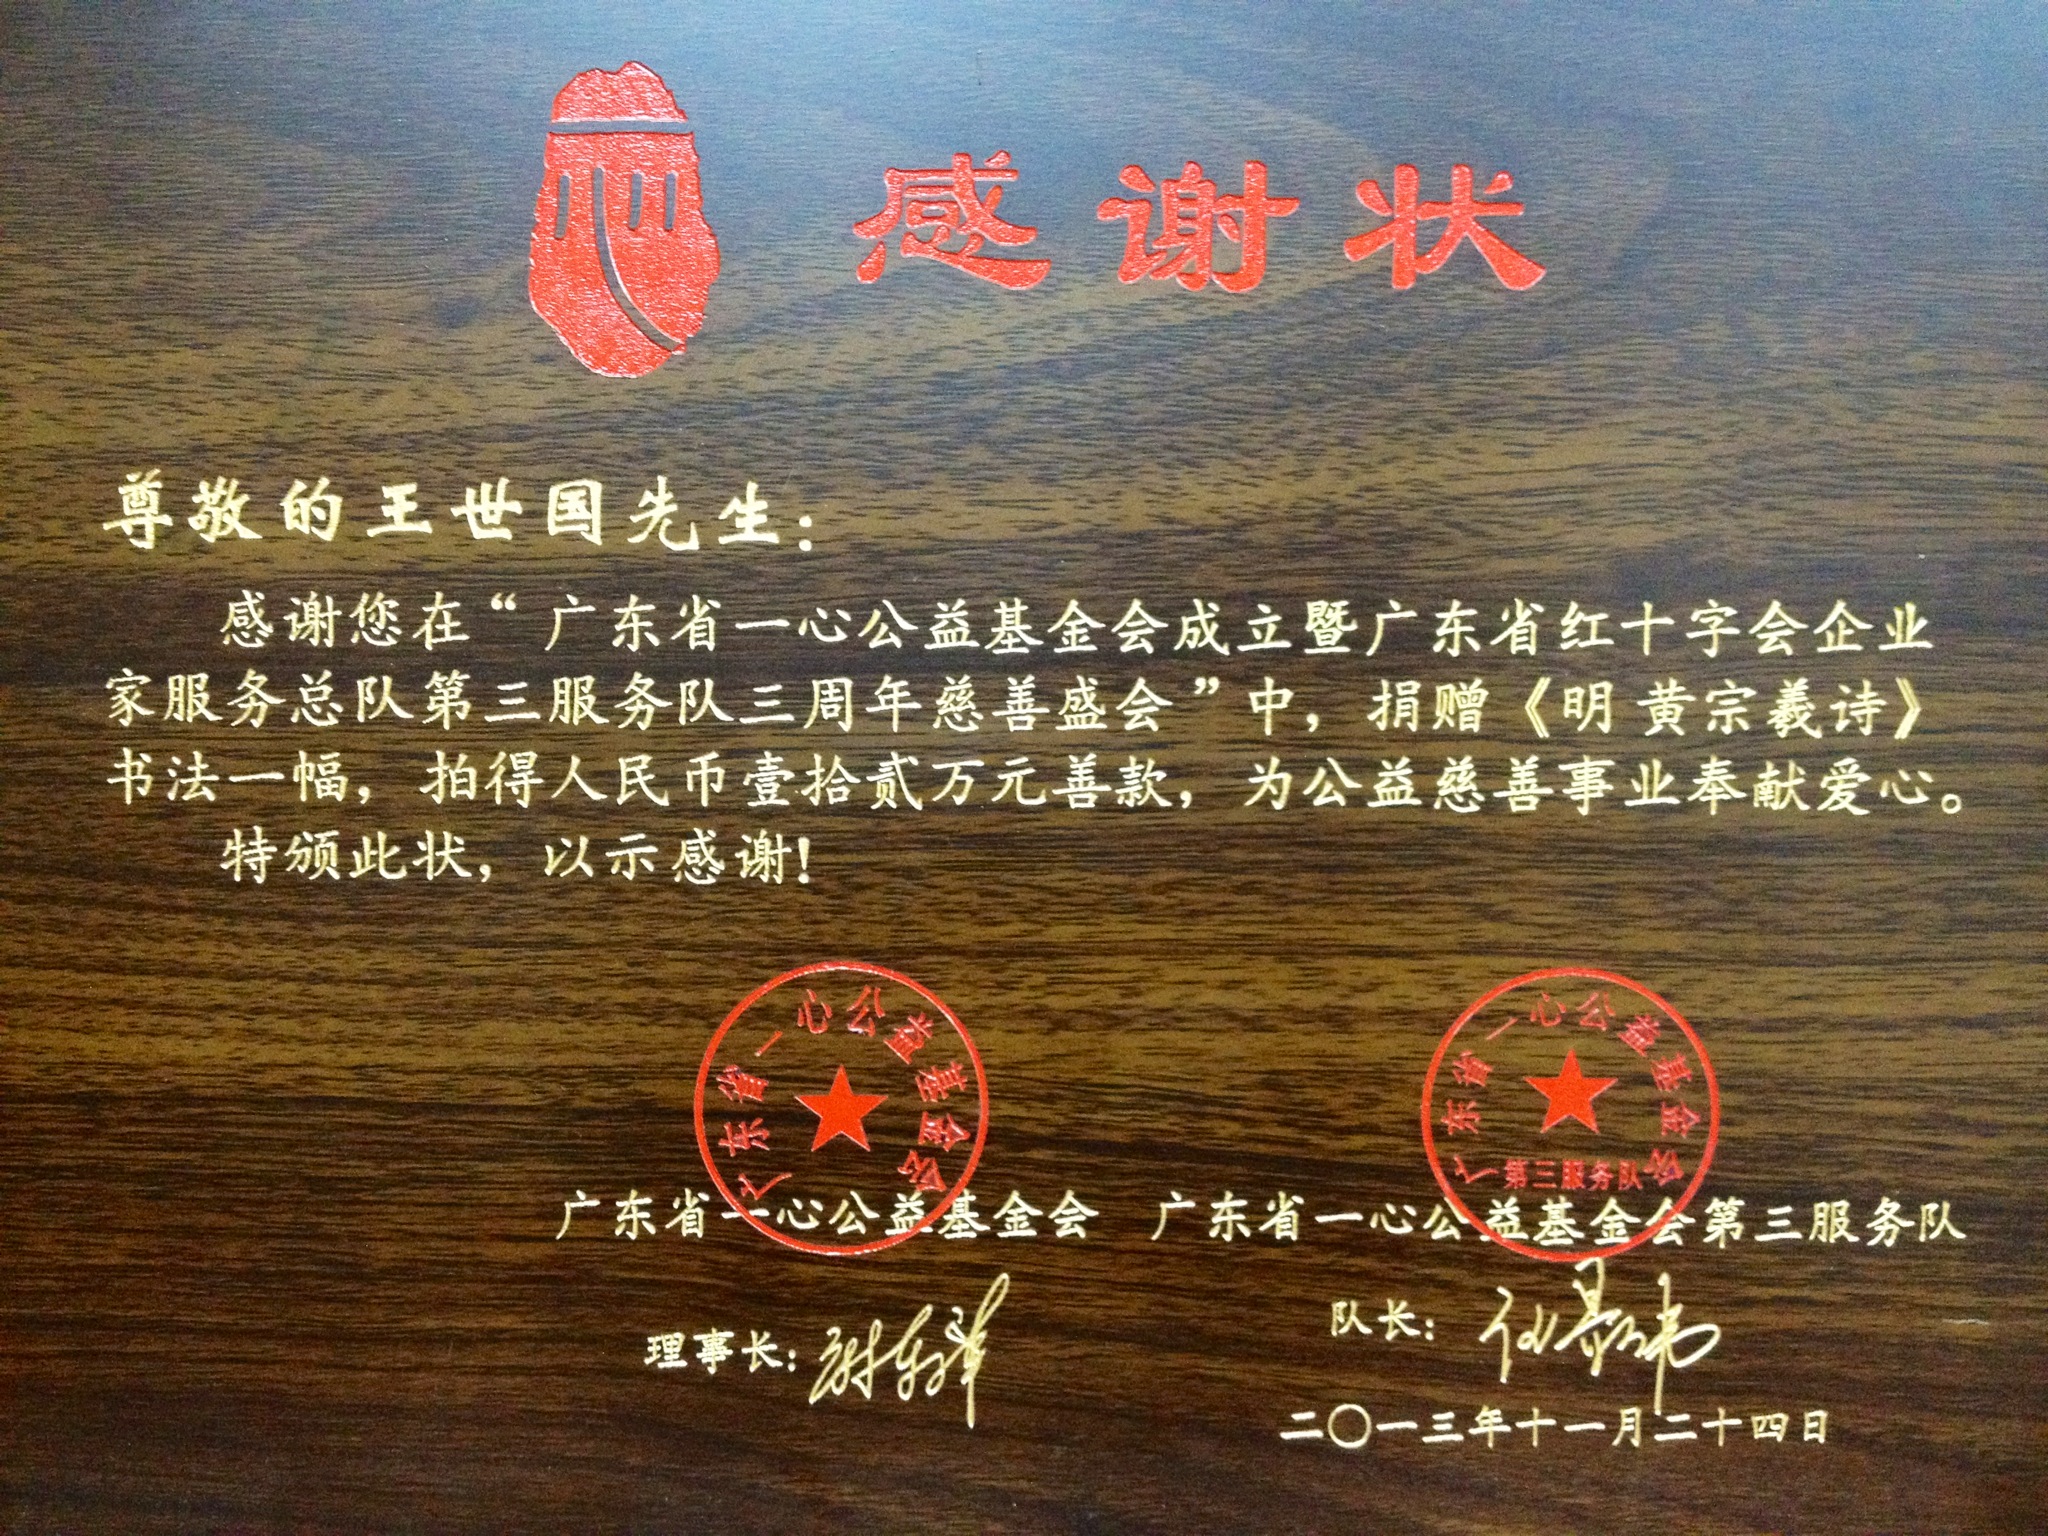 感谢状
尊敬的王世国先生：
感谢您在“广东省一心公益基金会成立暨广东省红十字会企业
家服务总队第三服务队三周年慈善盛会”中，捐赠《明 黄宗羲诗》
书法一幅，拍得人民币壹拾贰万元善款，为公益慈善事业奉献爱心。
特颁此状，以示感谢！
广东省一心公益基金会
广东省一心公益基金会
第三服务队
广东省一心公益基金会 广东省一心公益基金会第三服务队
理事长：
队长：
二〇一三年十一月二十四日